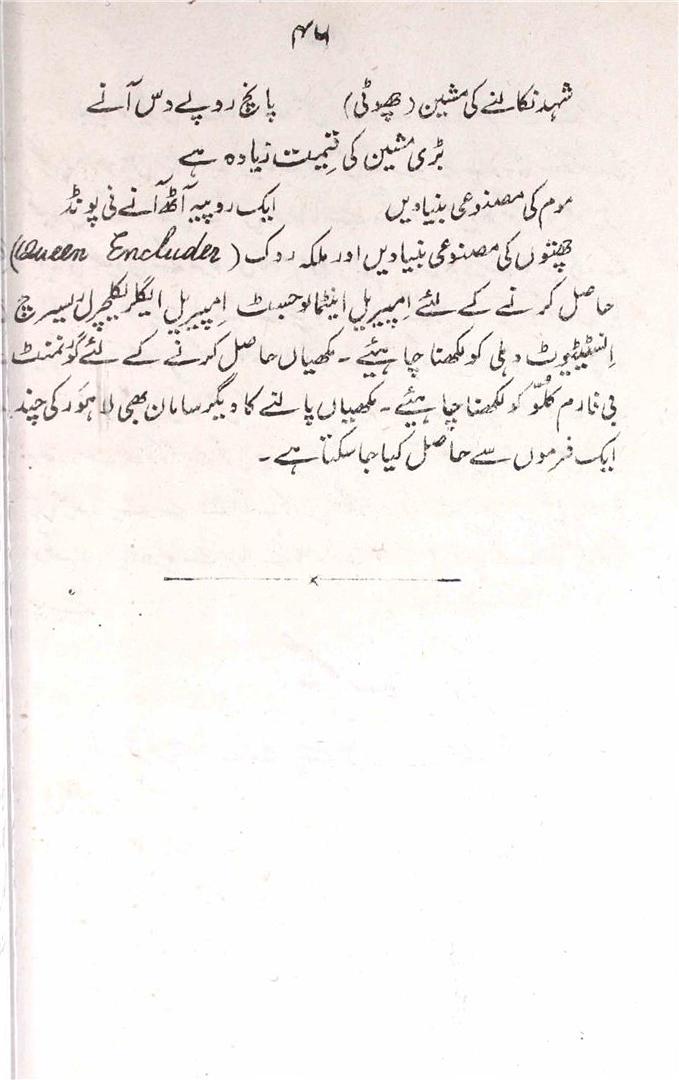 ۴۶
شہد نکالنے کی مشین (چھوٹی) پانچ روپے دس آنے
بڑی مشین کی قیمت زیادہ ہے
موم کی مصنوعی بنیادیں ایک روپیہ آٹھ آنے فی پونڈ
چھتوں کی مصنوعی بنیادیں اور ملکہ روک (Queen Encluder)
حاصل کرنے کے لئے اِمپیریل اینٹمالوجسٹ اِمپیریل ایگریکلچرل ریسرچ
اِنسٹیٹیوٹ دہلی کو لکھنا چاہیئے ۔ مکھیاں حاصل کرنے کے لئے گورنمنٹ
بی فارم کلّو کو لکھنا چاہیئے ۔ مکھیاں پالنے کا دیگر سامان بھی لاہور کی چند
ایک فرموں سے حاصل کیا جا سکتا ہے ۔